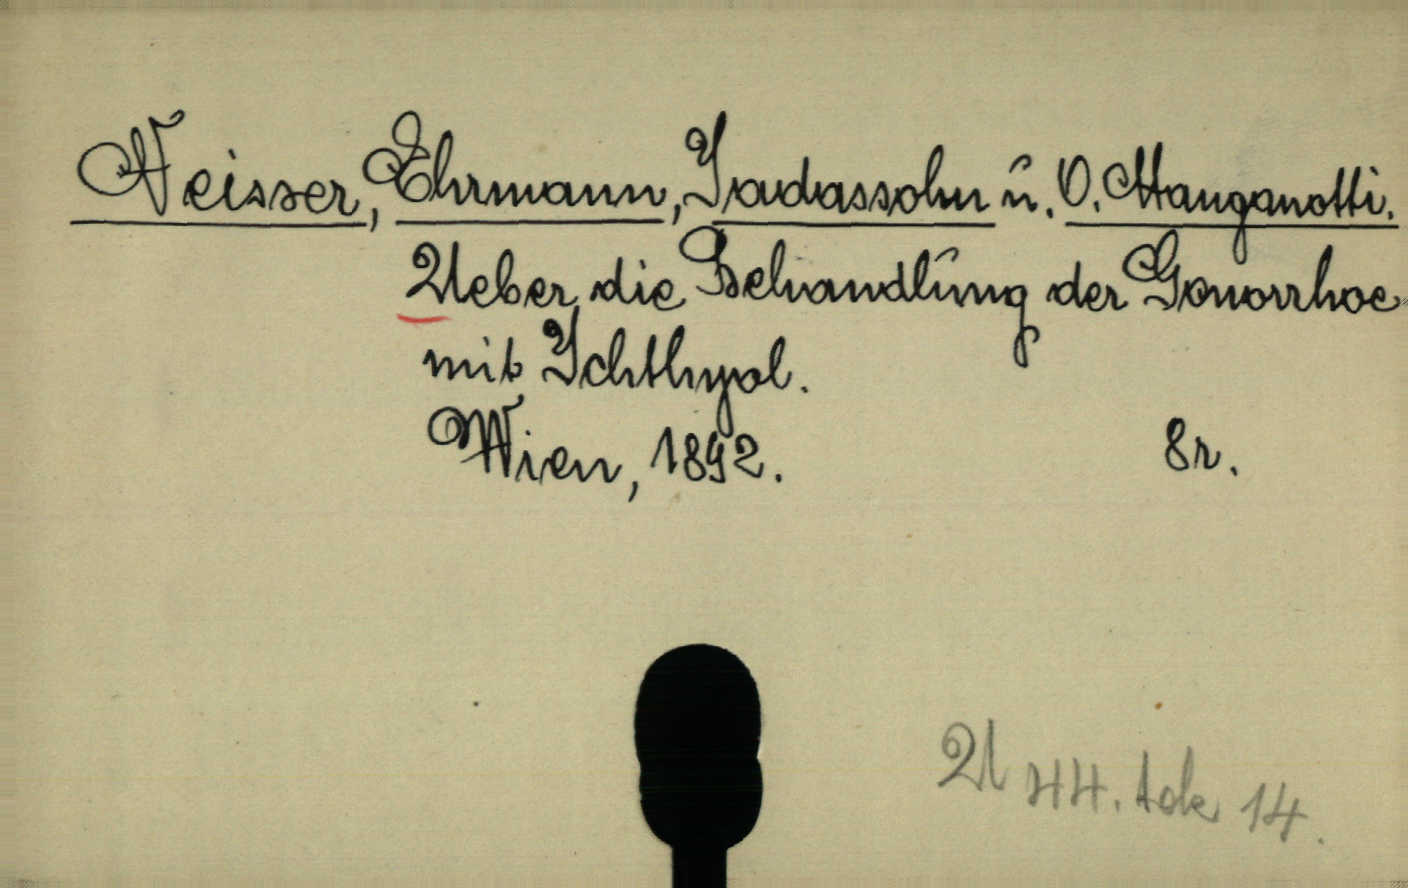 Neisser, Ehrmann, Jadassohn u. O. Manganotti.
Ueber die Behandlung der Gonorrhoe
mit Ichthyol.
Wien, 1892. 8r.
14.